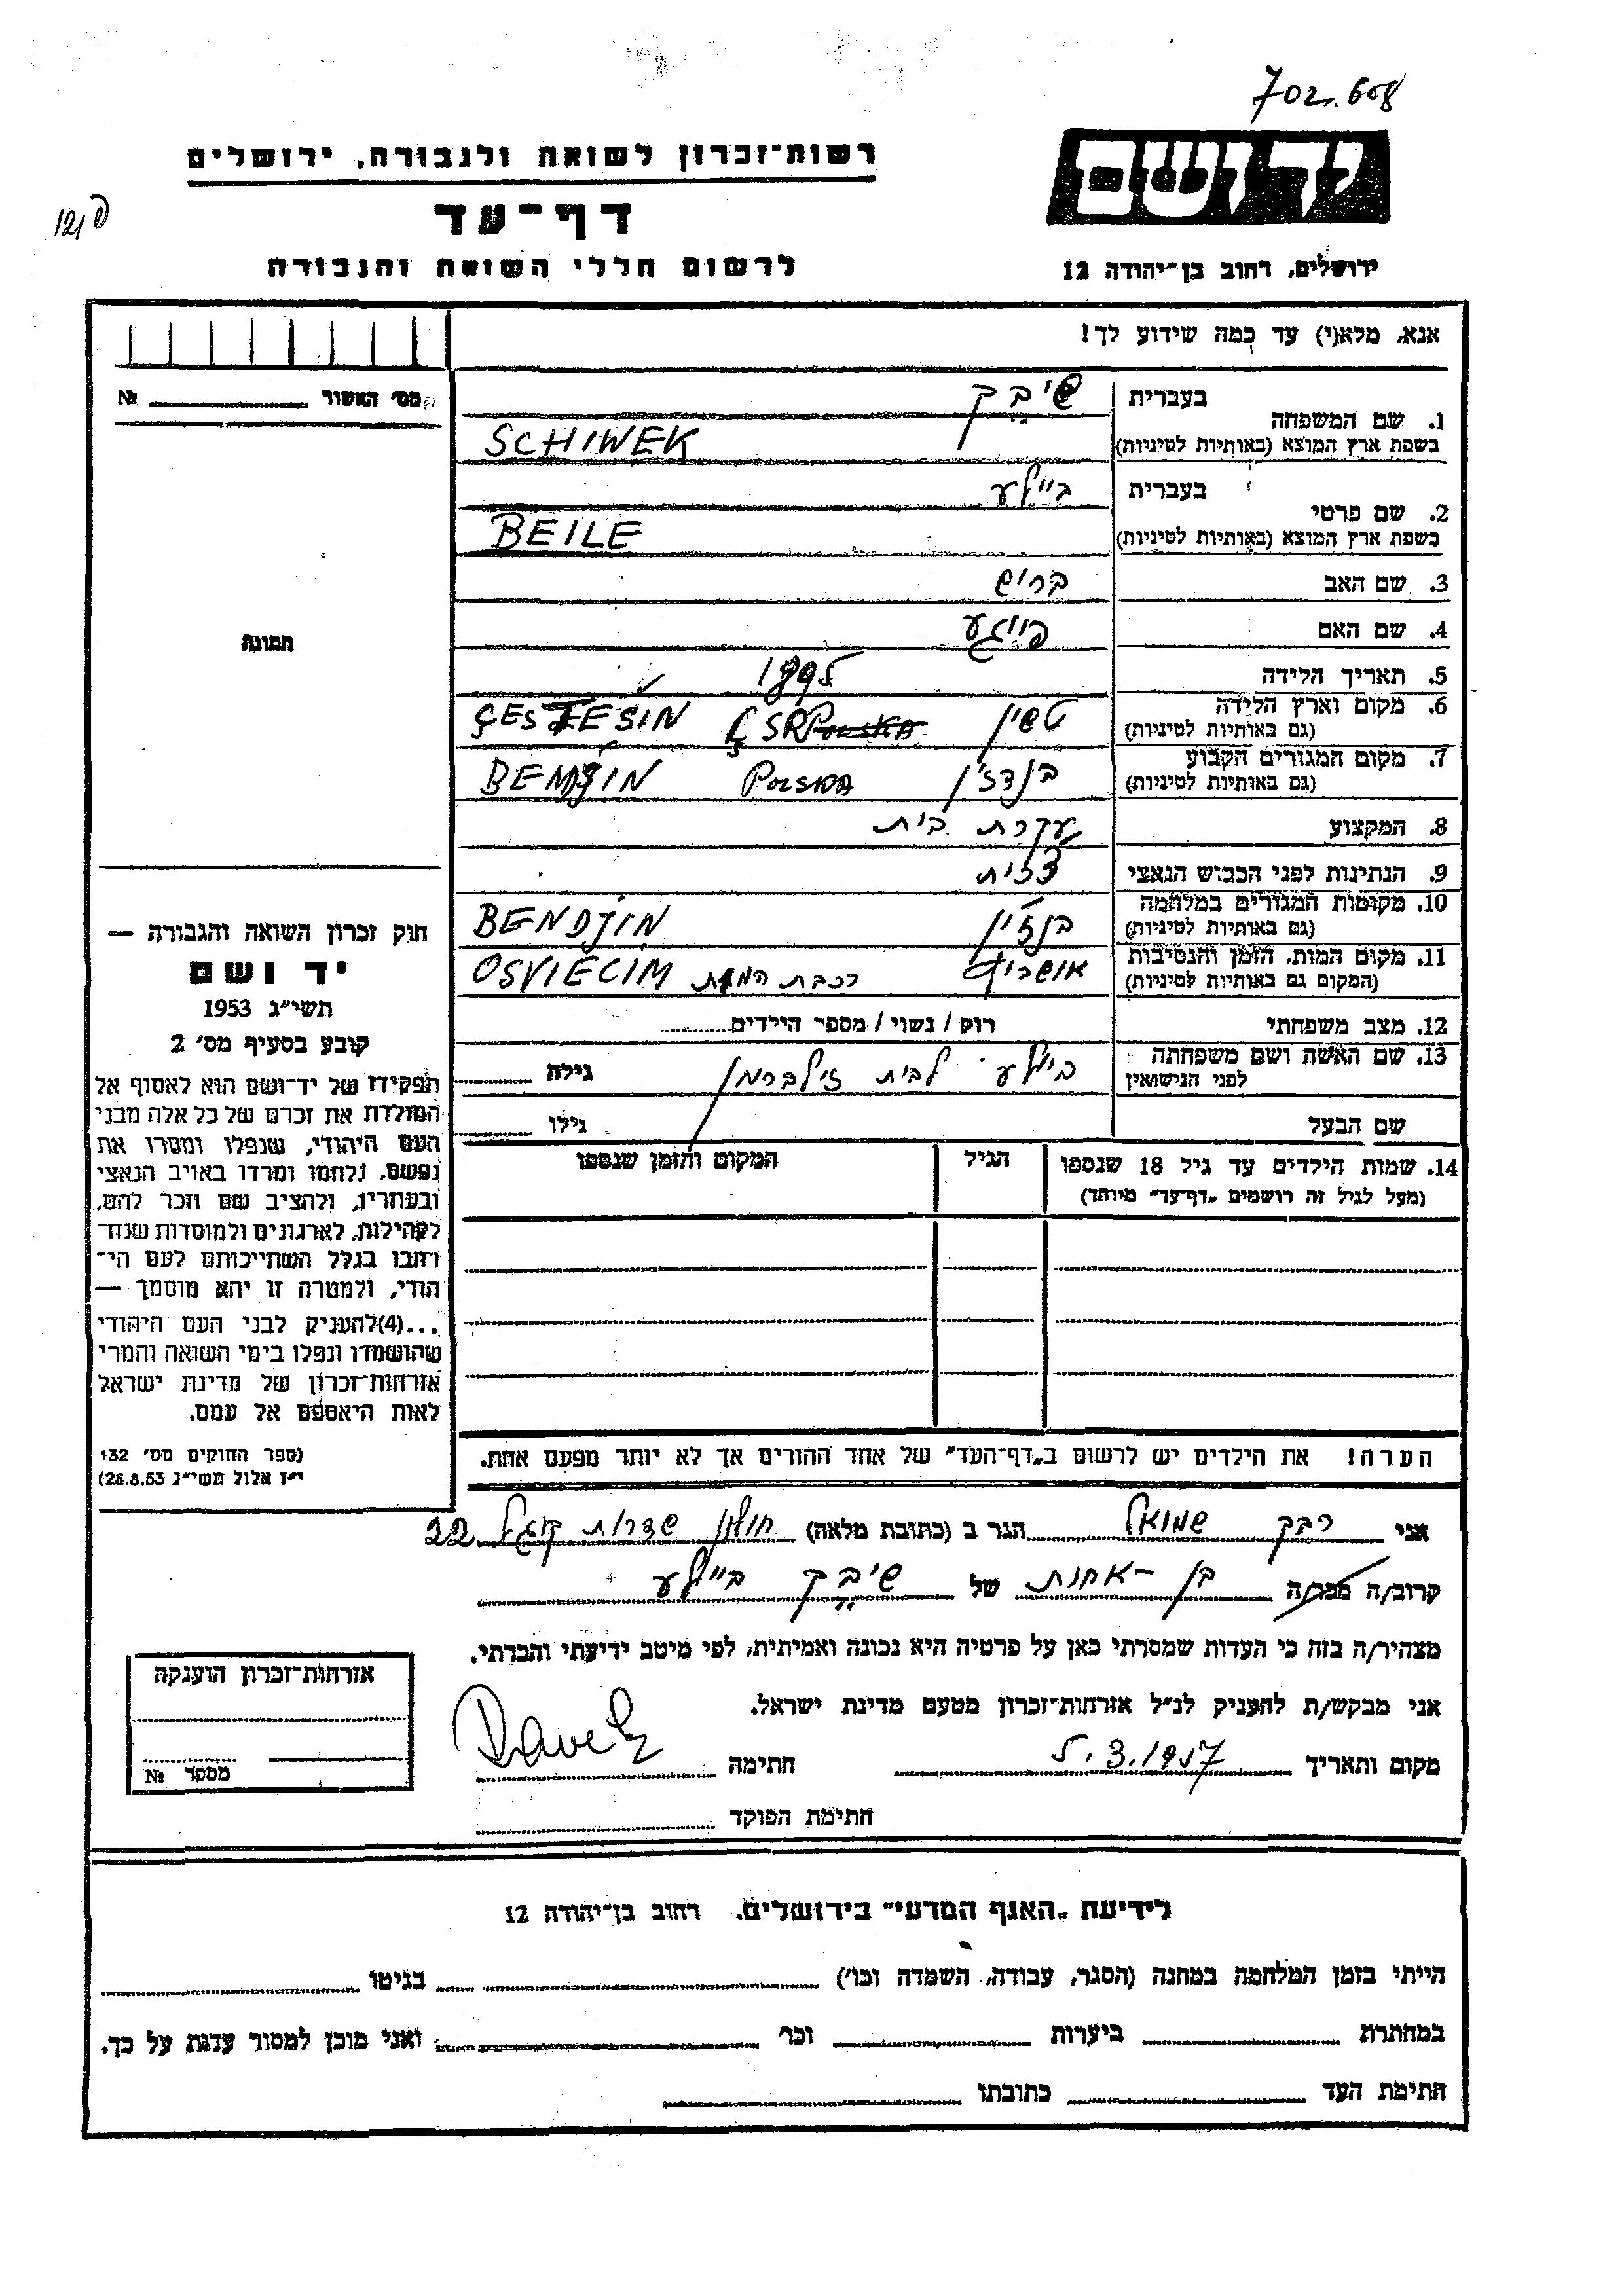 702.608
רשות־זכרון לשואה ולגבורה, ירושלים
יד ושם
דף־עד
לרשום חללי השואה והגבורה
ירושלים, רחוב בן־יהודה 12
אנא, מלא(י) עד כמה שידוע לך!
מס' האשור № 
בעברית שיבק
1. שם המשפחה
בשפת ארץ המוצא (באותיות לטיניות) SCHIWEK
בעברית ביילע
2. שם פרטי
בשפת ארץ המוצא (באותיות לטיניות) BEILE
3. שם האב בריש
4. שם האם פייגע
תמונה
5. תאריך הלידה 1895
6. מקום וארץ הלידה טשין ÇSR POLSKA ÇES TESIN
(גם באותיות לטיניות)
7. מקום המגורים הקבוע בנדז'ין POLSKA
(גם באותיות לטיניות)
8. המקצוע עקרת בית
9. הנתינות לפני הכבוש הנאצי
10. מקומות המגורים במלחמה בנדז'ין BENDJIN
(גם באותיות לטיניות)
11. מקום המות, הזמן והנסיבות אושביץ רכבת המות OSVIECIM
(המקום גם באותיות לטיניות)
12. מצב משפחתי רוק / נשוי / מספר הילדים
13. שם האשה ושם משפחתה ביילע לבית זילברמן גילה
לפני הנישואין
שם הבעל גילו
14. שמות הילדים עד גיל 18 שנספו הגיל המקום והזמן שנספו
(מעל לגיל זה רושמים „דף־עד" מיוחד)
הערה! את הילדים יש לרשום ב„דף־העד" של אחד ההורים אך לא יותר מפעם אחת.
חוק זכרון השואה והגבורה —
יד ושם
תשי״ג 1953
קובע בסעיף מס' 2
תפקידו של יד־ושם הוא לאסוף אל
המולדת את זכרם של כל אלה מבני
העם היהודי, שנפלו ומסרו את
נפשם, נלחמו ומרדו באויב הנאצי
ובעוזריו, ולהציב שם וזכר להם,
לקהילות, לארגונים ולמוסדות שנח־
רבו בגלל השתייכותם לעם הי־
הודי, ולמטרה זו יהא מוסמך —
...(4) להעניק לבני העם היהודי
שהושמדו ונפלו בימי השואה והמרי
אזרחות־זכרון של מדינת ישראל
לאות היאספם אל עמם.
(ספר החוקים מס' 132
י״ז אלול תשי״ג 28.8.53)
אני רבק שמואל הגר ב (כתובת מלאה) חולון שדרות קוגל 22
קרוב/ה מכר/ה בן - אחות של שיבק ביילע
מצהיר/ה בזה כי העדות שמסרתי כאן על פרטיה היא נכונה ואמיתית, לפי מיטב ידיעתי והכרתי.
אני מבקש/ת להעניק לנ״ל אזרחות־זכרון מטעם מדינת ישראל.
מקום ותאריך 5.3.1957 חתימה
חתימת הפוקד
אזרחות־זכרון הוענקה
מספר №
לידיעת „האגף המדעי" בירושלים. רחוב בן־יהודה 12
הייתי בזמן המלחמה במחנה (הסגר, עבודה, השמדה וכו') בגיטו
במחתרת ביערות וכו' ואני מוכן למסור עדות על כך.
חתימת העד כתובתו